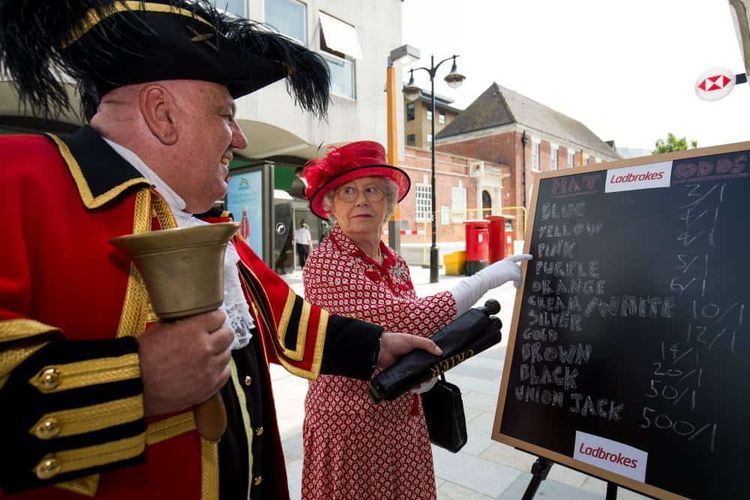 HAT Ladbrokes ODDS
BLUE 3/1
YELLOW 4/1
PINK 4/1
PURPLE 5/1
ORANGE 6/1
CREAM/WHITE 10/1
SILVER 12/1
GOLD 14/1
BROWN 20/1
BLACK 50/1
UNION JACK 500/1
Ladbrokes
CRIER